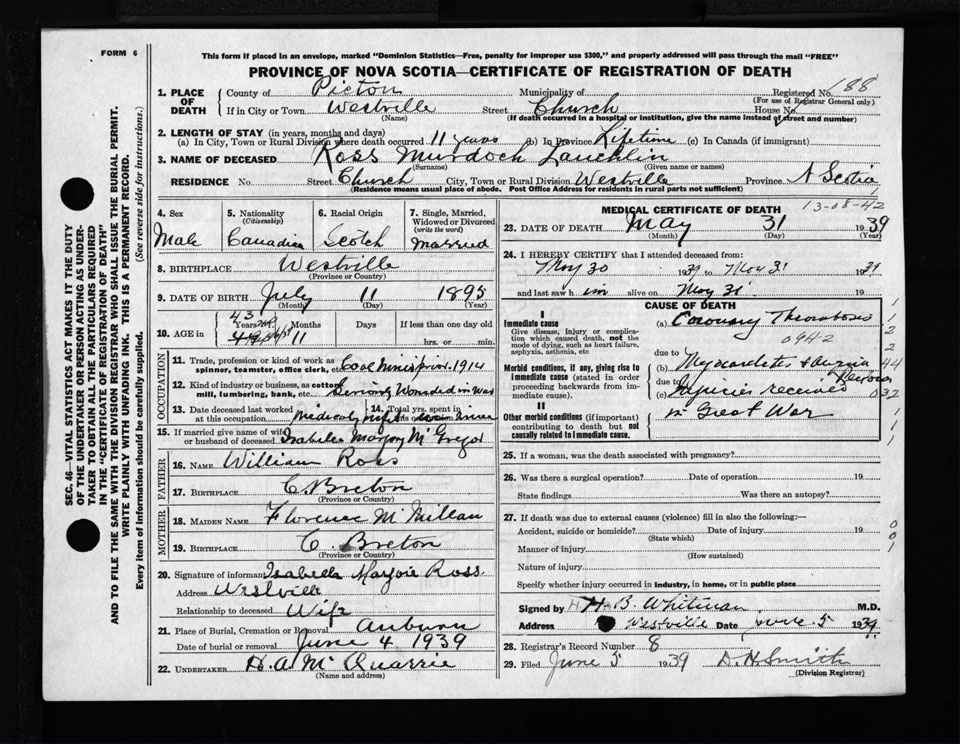 FORM 6
This form if placed in an envelope, marked "Dominion Statistics—Free, penalty for improper use $300," and properly addressed will pass through the mail "FREE"
PROVINCE OF NOVA SCOTIA—CERTIFICATE OF REGISTRATION OF DEATH
1. PLACE OF DEATH
County of Picton Municipality of Registered No. 188
(For use of Registrar General only)
If in City or Town Westville Street Church House No.
(Name) (If death occurred in a hospital or institution, give the name instead of street and number)
2. LENGTH OF STAY (in years, months and days)
(a) In City, Town or Rural Division where death occurred 11 years (b) In Province Lifetime (c) In Canada (if immigrant)
3. NAME OF DECEASED Ross Murdoch Lauchlin
(Surname) (Given name or names)
RESIDENCE No. Street Church City, Town or Rural Division Westville Province N Scotia
(Residence means usual place of abode. Post Office Address for residents in rural parts not sufficient)
4. Sex 5. Nationality (Citizenship) 6. Racial Origin 7. Single, Married, Widowed or Divorced (write the word)
Male Canadian Scotch Married
8. BIRTHPLACE Westville
(Province or Country)
9. DATE OF BIRTH July 11 1895
(Month) (Day) (Year)
10. AGE in Years 43 Months 11 Days If less than one day old
hrs. or min.
OCCUPATION
11. Trade, profession or kind of work as spinner, teamster, office clerk, etc. Coal Miner prior 1914
12. Kind of industry or business, as cotton mill, lumbering, bank, etc. Serious Wounded in War
13. Date deceased last worked at this occupation Medically
14. Total yrs. spent in
15. If married give name of wife or husband of deceased Isabella Marjory McGregor
FATHER
16. NAME William Ross
17. BIRTHPLACE C. Breton
(Province or Country)
MOTHER
18. MAIDEN NAME Florence McMillan
19. BIRTHPLACE C. Breton
(Province or Country)
20. Signature of informant Isabella Marjorie Ross
Address Westville
Relationship to deceased Wife
21. Place of Burial, Cremation or Removal Auburn
Date of burial or removal June 4 1939
22. UNDERTAKER H. A. McQuarrie
MEDICAL CERTIFICATE OF DEATH 13-08-42
23. DATE OF DEATH May 31 1939
(Month) (Day) (Year)
24. I HEREBY CERTIFY that I attended deceased from:
May 30 1939 to May 31 1939
and last saw h im alive on May 31 19
CAUSE OF DEATH
I
Immediate cause
Give disease, injury or complication which caused death, not the mode of dying, such as heart failure, asphyxia, asthenia, etc
(a) Coronary Thrombosis
094-2
due to
Morbid conditions, if any, giving rise to immediate cause (stated in order proceeding backwards from immediate).
(b) Myocarditis & Angina Pectoris
due to
(c) Injuries received
in Great War
II
Other morbid conditions (if important) contributing to death but not causally related to immediate cause.
1
2
2
44
032
1
1
25. If a woman, was the death associated with pregnancy?
26. Was there a surgical operation? Date of operation 19
State findings Was there an autopsy?
27. If death was due to external causes (violence) fill in also the following:—
Accident, suicide or homicide? Date of injury 19
(State which)
Manner of injury
(How sustained)
Nature of injury
Specify whether injury occurred in industry, in home, or in public place
0
0
1
Signed by H. B. Whitman M.D.
Address Westville Date June 5 1939
28. Registrar's Record Number 8
29. Filed June 5 1939 D. H. Smith
(Division Registrar)
SEC. 46—VITAL STATISTICS ACT MAKES IT THE DUTY
OF THE UNDERTAKER OR PERSON ACTING AS UNDERTAKER
TO OBTAIN ALL THE PARTICULARS REQUIRED
IN THE "CERTIFICATE OF REGISTRATION OF DEATH"
AND TO FILE THE SAME WITH THE DIVISION REGISTRAR WHO SHALL ISSUE THE BURIAL PERMIT.
WRITE PLAINLY WITH UNFADING INK. THIS IS A PERMANENT RECORD.
Every item of information should be carefully supplied. (See reverse side for instructions.)